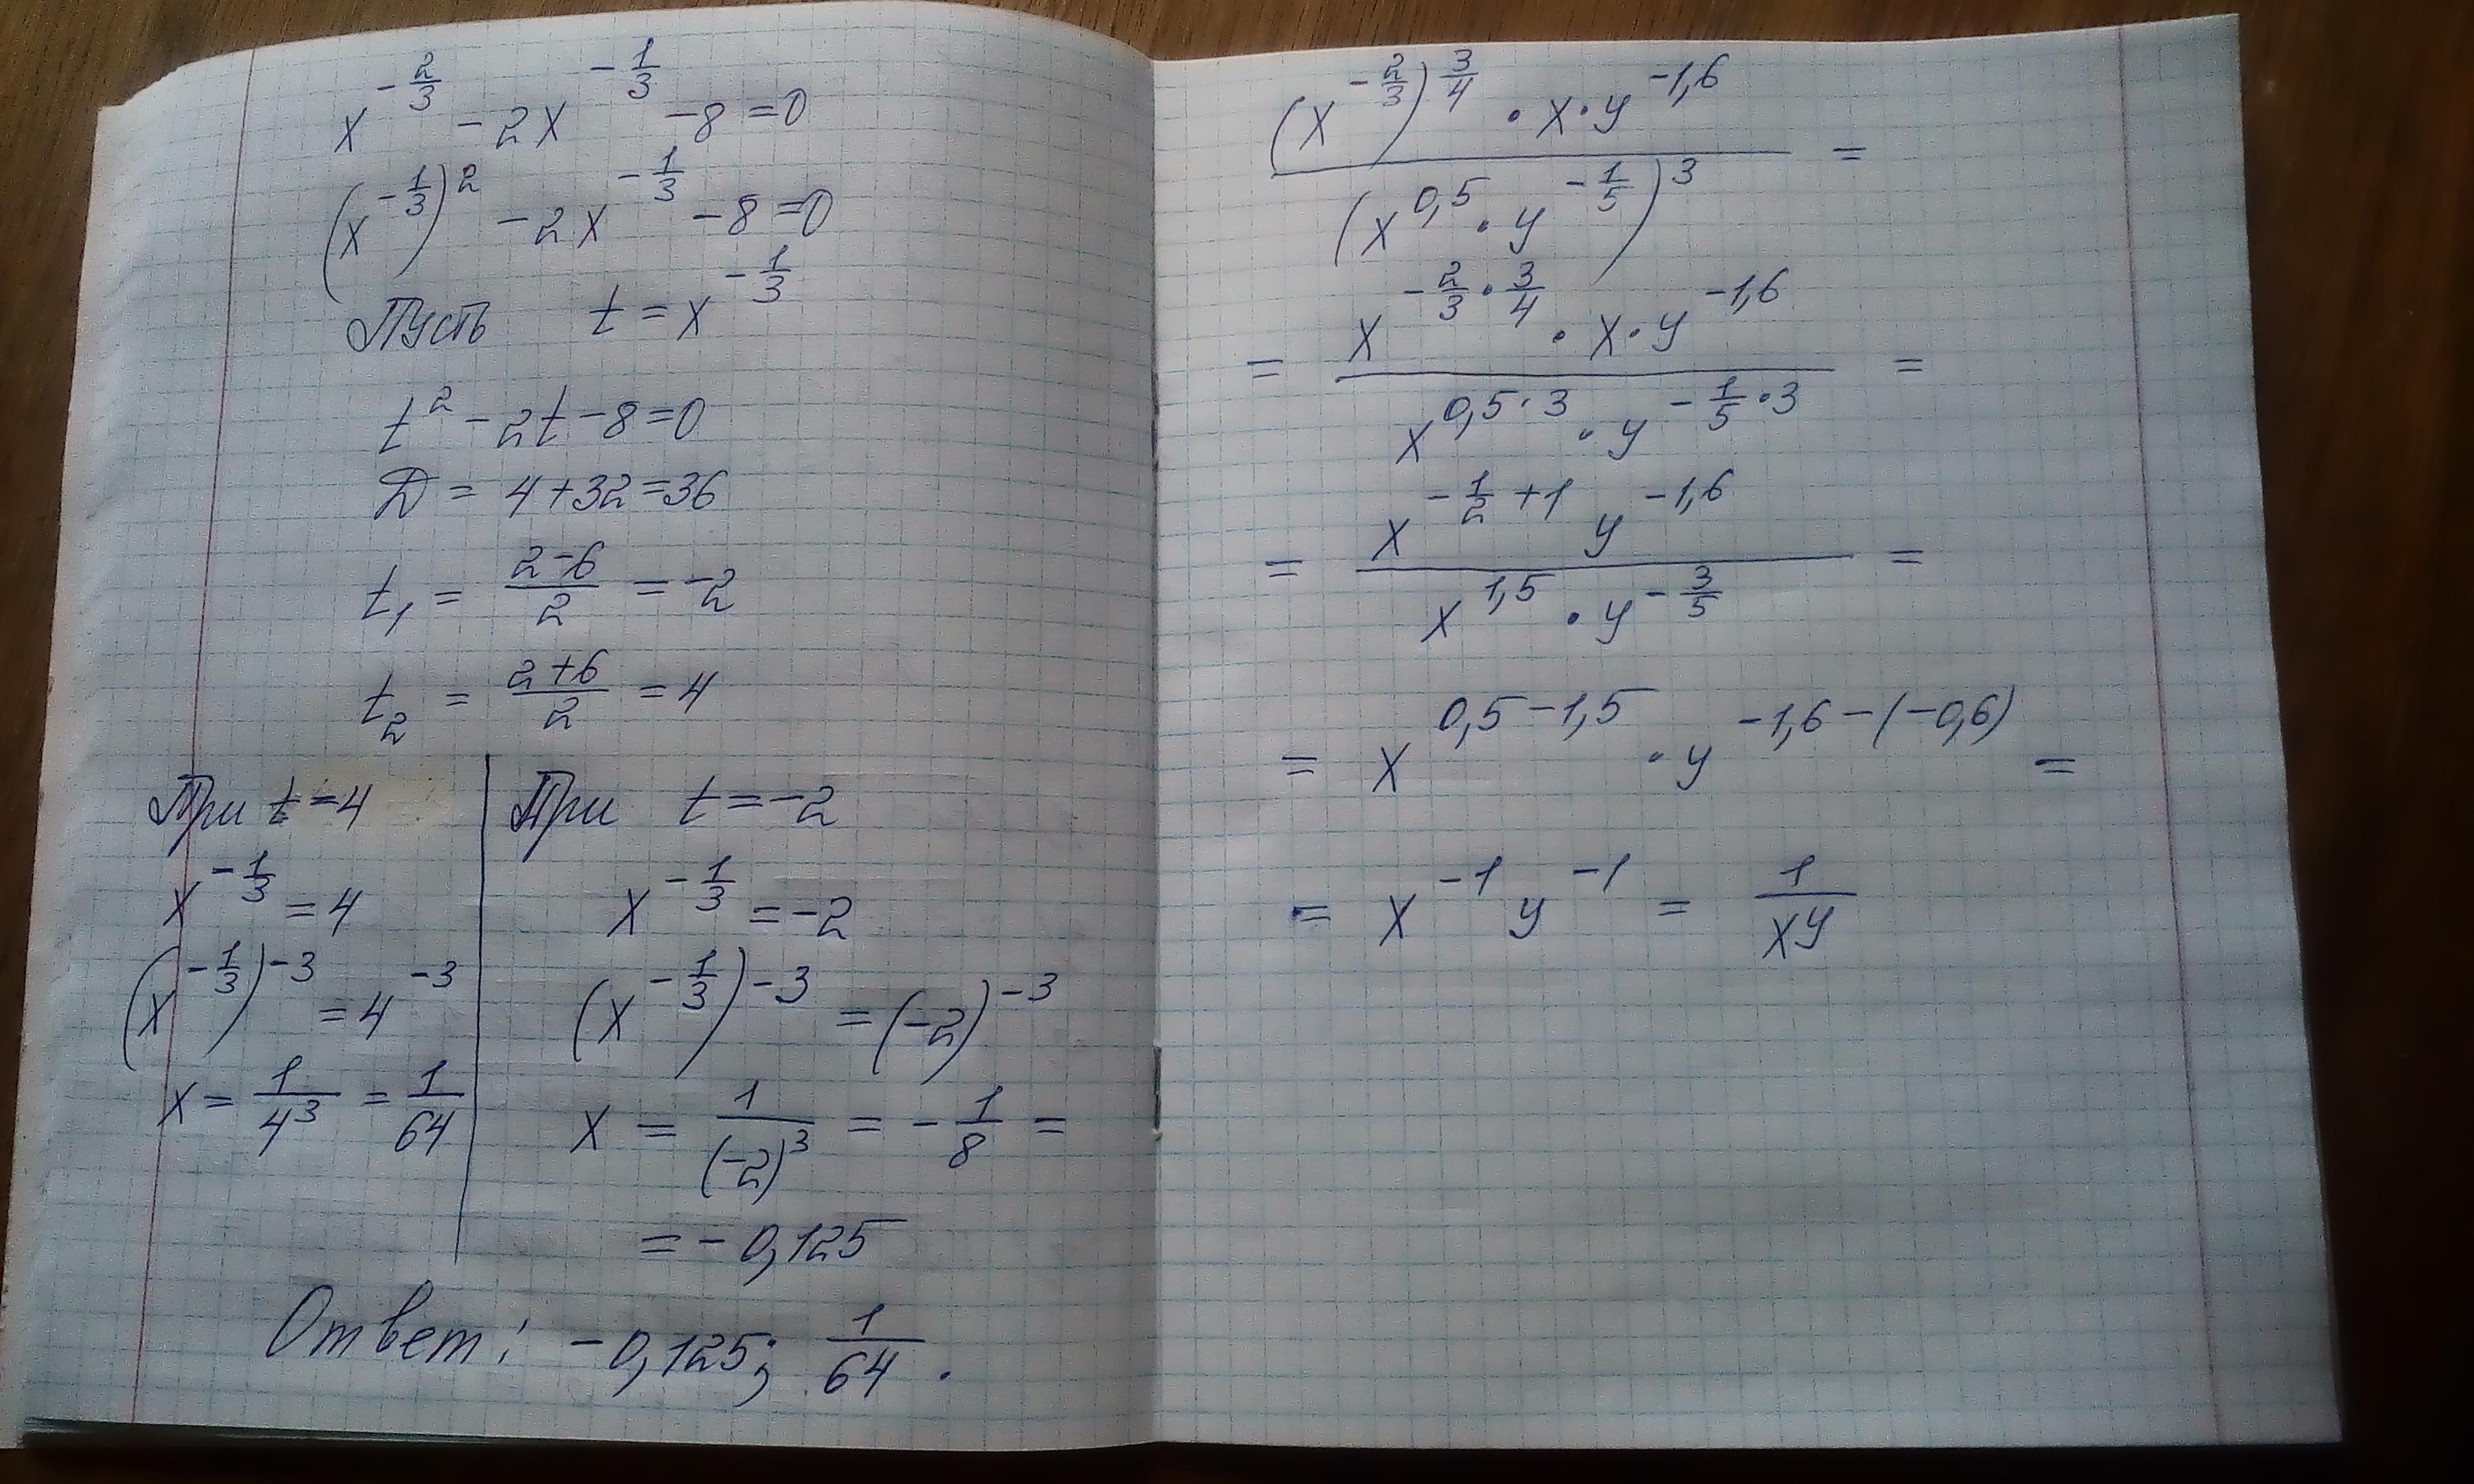 x^(-2/3) - 2x^(-1/3) - 8 = 0
(x^(-1/3))^2 - 2x^(-1/3) - 8 = 0
Пусть t = x^(-1/3)
t^2 - 2t - 8 = 0
D = 4 + 32 = 36
t_1 = (2-6)/2 = -2
t_2 = (2+6)/2 = 4
При t = 4
x^(-1/3) = 4
(x^(-1/3))^(-3) = 4^(-3)
x = 1/4^3 = 1/64
При t = -2
x^(-1/3) = -2
(x^(-1/3))^(-3) = (-2)^(-3)
x = 1/(-2)^3 = -1/8 =
= -0,125
Ответ: -0,125; 1/64.
((x^(-2/3))^(3/4) · x · y^(-1,6)) / (x^(0,5) · y^(-1/5))^3 =
= (x^(-2/3 · 3/4) · x · y^(-1,6)) / (x^(0,5·3) · y^(-1/5·3)) =
= (x^(-1/2+1) y^(-1,6)) / (x^(1,5) · y^(-3/5)) =
= x^(0,5-1,5) · y^(-1,6-(-0,6)) =
= x^(-1) y^(-1) = 1/(xy)